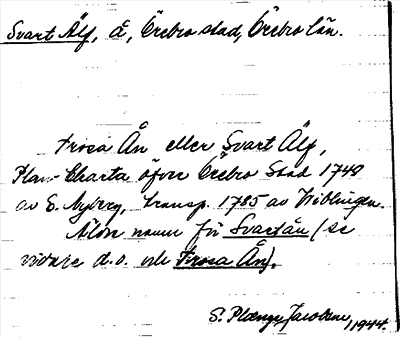 Svart Älf, å, Örebro stad, Örebro län.
Trosa Ån eller Svart Älf,
Plan-Charta öfver Örebro Stad 1748
av E. Nyberg, transp. 1785 av Wiblingen.
Äldre namn för Svartån (se
vidare d.o. och Trosa Ån).
S. Plænge Jacobson, 1944.